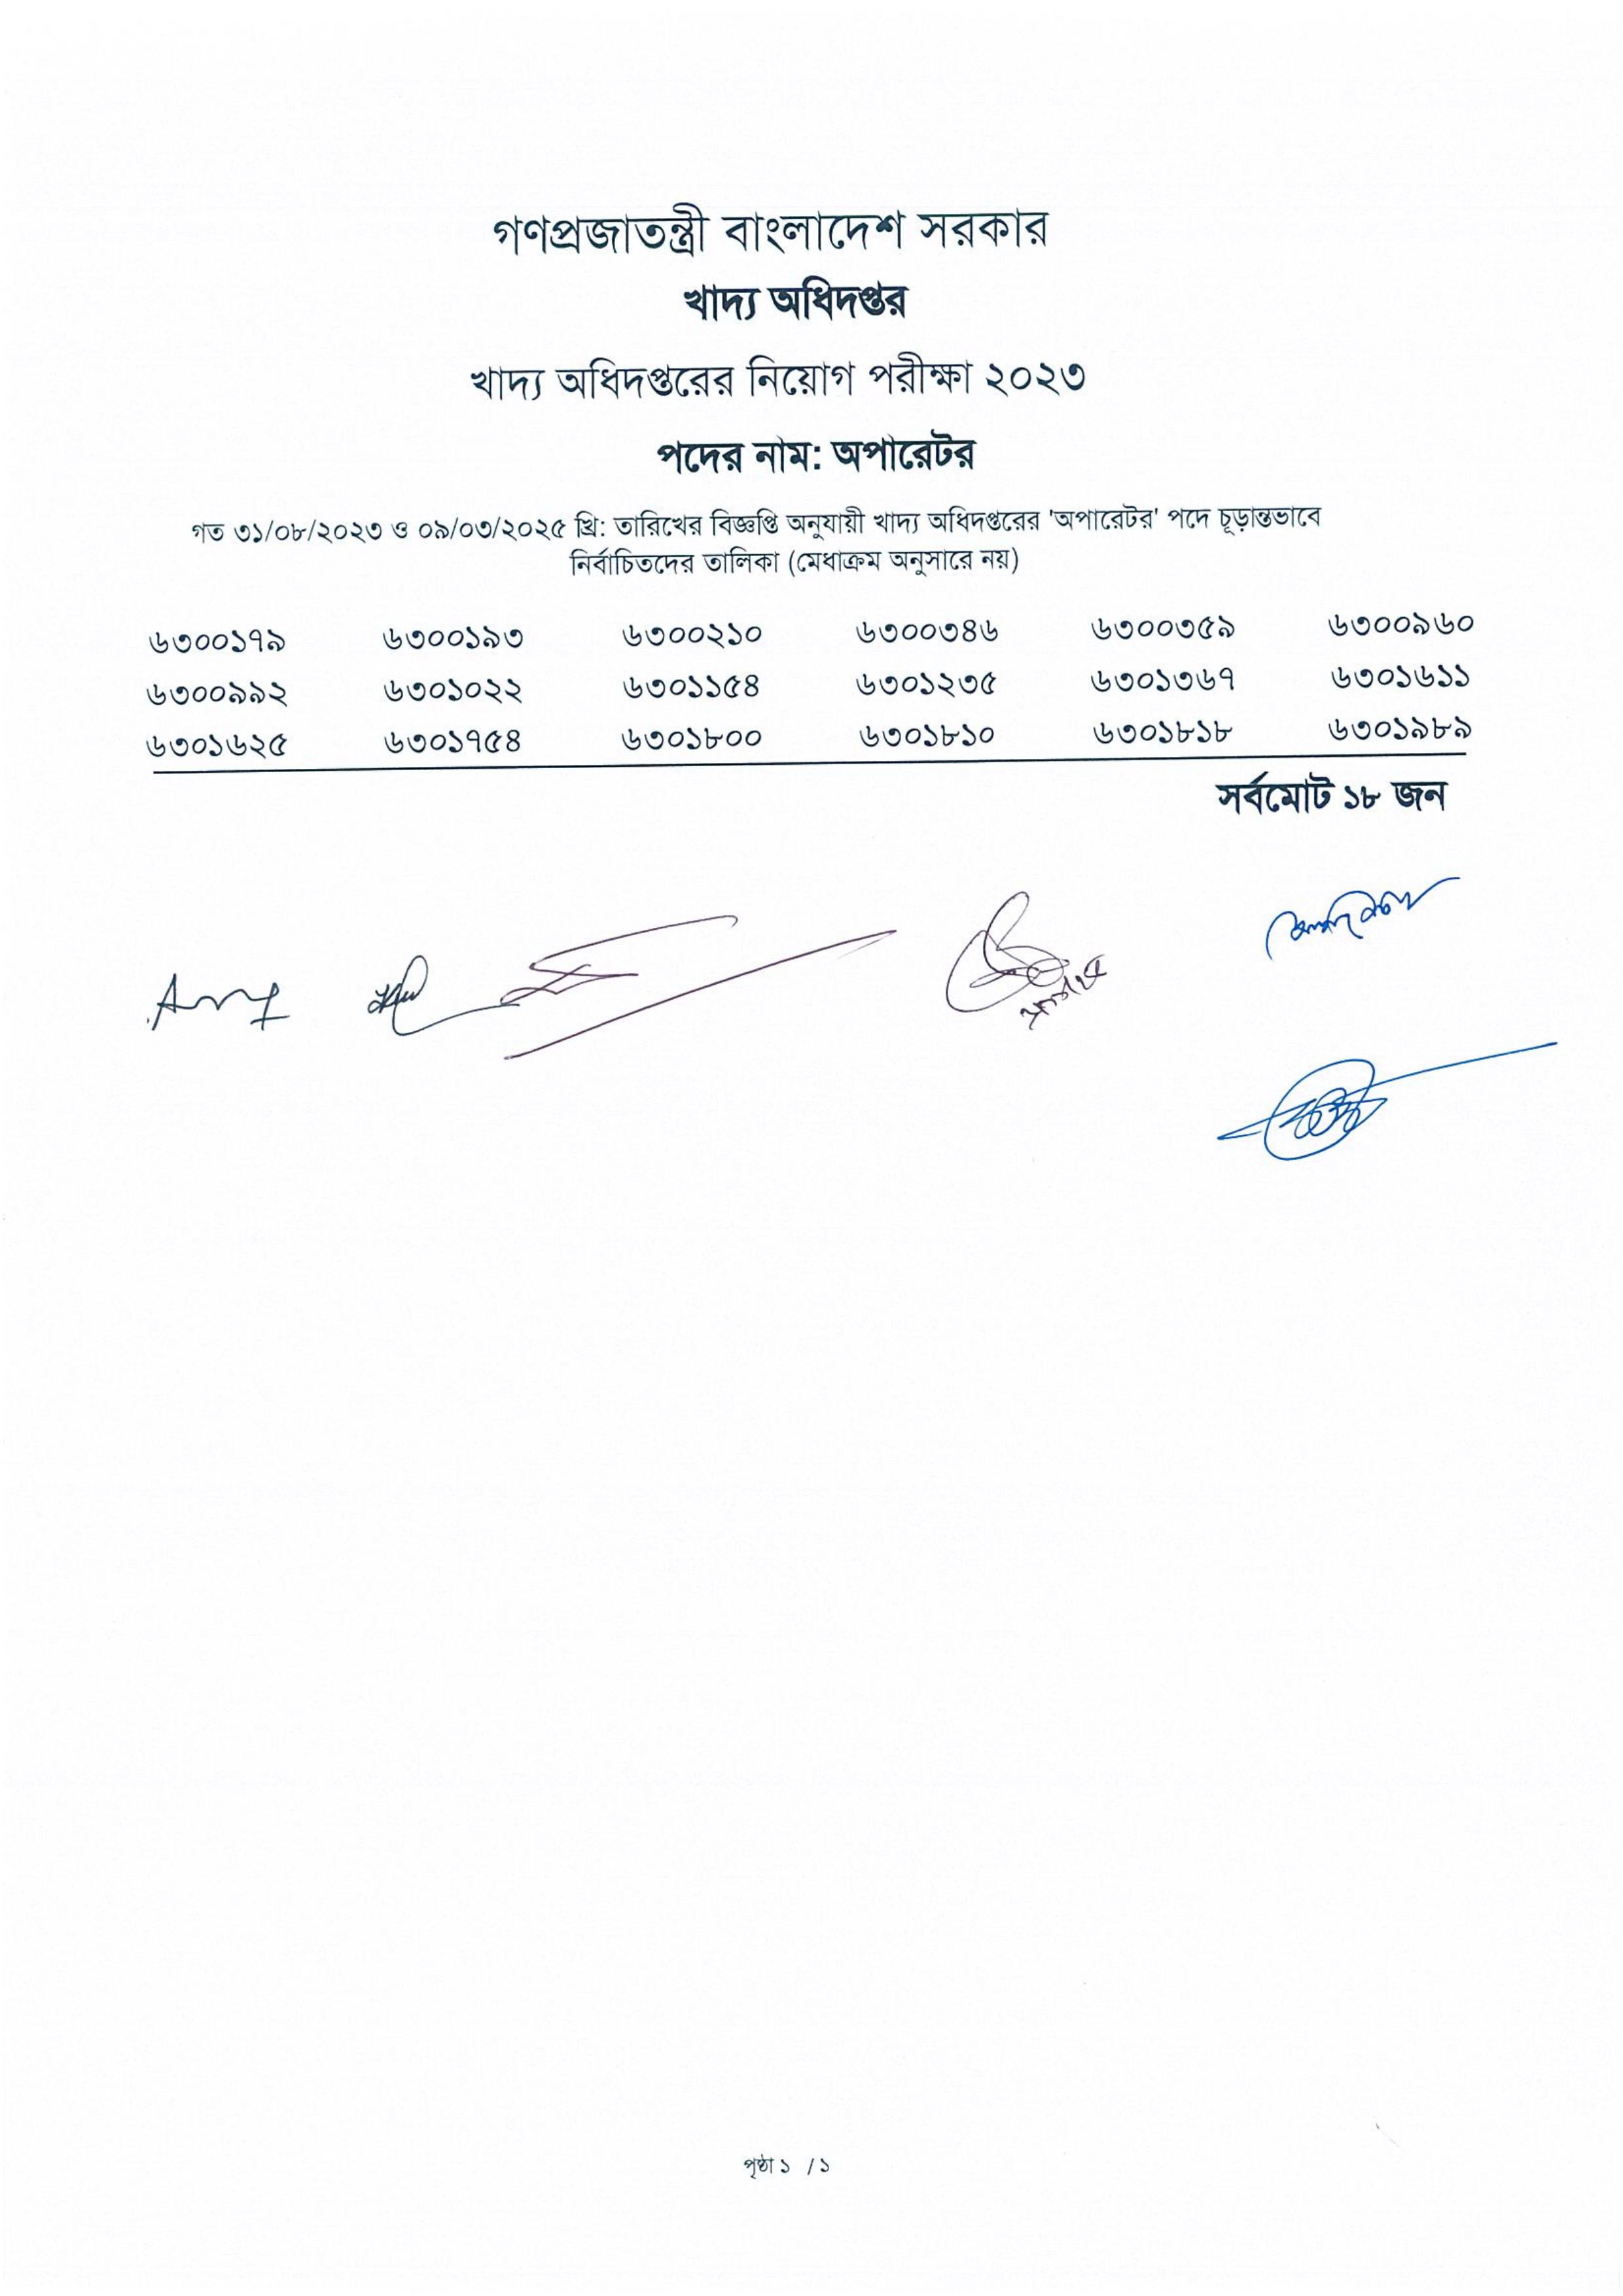 গণপ্রজাতন্ত্রী বাংলাদেশ সরকার
খাদ্য অধিদপ্তর
খাদ্য অধিদপ্তরের নিয়োগ পরীক্ষা ২০২৩
পদের নাম: অপারেটর
গত ৩১/০৮/২০২৩ ও ০৯/০৩/২০২৫ খ্রি: তারিখের বিজ্ঞপ্তি অনুযায়ী খাদ্য অধিদপ্তরের 'অপারেটর' পদে চূড়ান্তভাবে
নির্বাচিতদের তালিকা (মেধাক্রম অনুসারে নয়)
৬৩০০১৭৯ ৬৩০০১৯৩ ৬৩০০২১০ ৬৩০০৩৪৬ ৬৩০০৩৫৯ ৬৩০০৯৬০
৬৩০০৯৯২ ৬৩০১০২২ ৬৩০১১৫৪ ৬৩০১২৩৫ ৬৩০১৩৬৭ ৬৩০১৬১১
৬৩০১৬২৫ ৬৩০১৭৫৪ ৬৩০১৮০০ ৬৩০১৮১০ ৬৩০১৮১৮ ৬৩০১৯৮৯
সর্বমোট ১৮ জন
পৃষ্ঠা ১ / ১